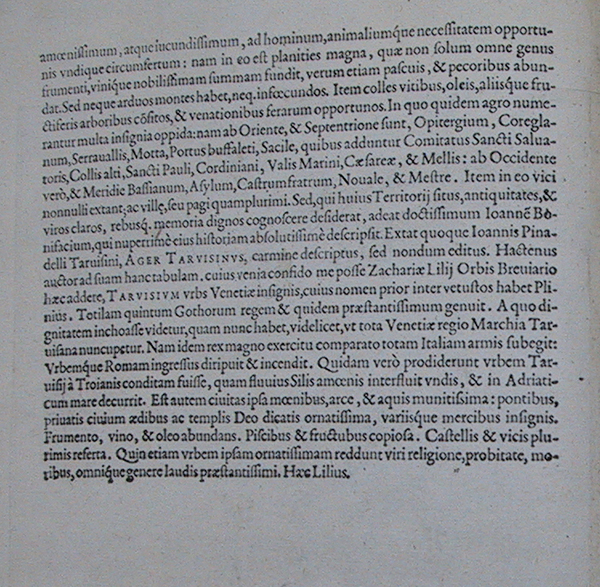 amœnissimum, atque iucundissimum, ad hominum, animaliumq́ue necessitatem opportu-
nis vndique circumfertum : nam in eo est planities magna, quæ non solum omne genus
frumenti, vinique nobilissimam summam fundit, verum etiam pascuis, & pecoribus abun-
dat. Sed neque arduos montes habet, neq. infœcundos. Item colles vitibus, oleis, aliisque fru-
ctiferis arboribus cõsitos, & venationibus ferarum opportunos. In quo quidem agro nume-
rantur multa insignia oppida: nam ab Oriente, & Septentrione sunt, Opitergium, Coregla-
num, Serrauallis, Motta, Portus buffaleti, Sacile, quibus adduntur Comitatus Sancti Salua-
toris, Collis alti, Sancti Pauli, Cordiniani, Valis Marini, Cæsareæ, & Mellis : ab Occidente
verò, & Meridie Bassianum, Asylum, Castrum fratrum, Nouale, & Mestre. Item in eo vici
nonnulli extant; ac villę, seu pagi quamplurimi. Sed, qui huius Territorij situs, antiquitates, &
viros claros, rebusq. memoria dignos cognoscere desiderat, adeat doctissimum Ioannẽ Bõ-
nifacium, qui nuperrimè eius historiam absolutissimè descripsit. Extat quoque Ioannis Pina-
delli Taruisini, AGER TARVISINVS, carmine descriptus, sed nondum editus. Hactenus
auctor ad suam hanc tabulam. cuius venia confido me posse Zachariæ Lilij Orbis Breuiario
hæc addere, TARVISIVM vrbs Venetiæ insignis, cuius nomen prior inter vetustos habet Pli-
nius. Totilam quintum Gothorum regem & quidem præstantissimum genuit. A quo di-
gnitatem inchoasse videtur, quam nunc habet, videlicet, vt tota Venetiæ regio Marchia Tar-
uisana nuncupetur. Nam idem rex magno exercitu comparato totam Italiam armis subegit:
Vrbemque Romam ingressus diripuit & incendit. Quidam verò prodiderunt vrbem Tar-
uisij à Troianis conditam fuisse, quam fluuius Silis amœnis interfluit vndis, & in Adriati-
cum mare decurrit. Est autem ciuitas ipsa mœnibus, arce, & aquis munitissima : pontibus,
priuatis ciuium ædibus ac templis Deo dicatis ornatissima, variisque mercibus insignis.
Frumento, vino, & oleo abundans. Piscibus & fructubus copiosa. Castellis & vicis plu-
rimis referta. Quin etiam vrbem ipsam ornatissimam reddunt viri religione, probitate, mo-
ribus, omnique genere laudis præstantissimi. Hæc Lilius.